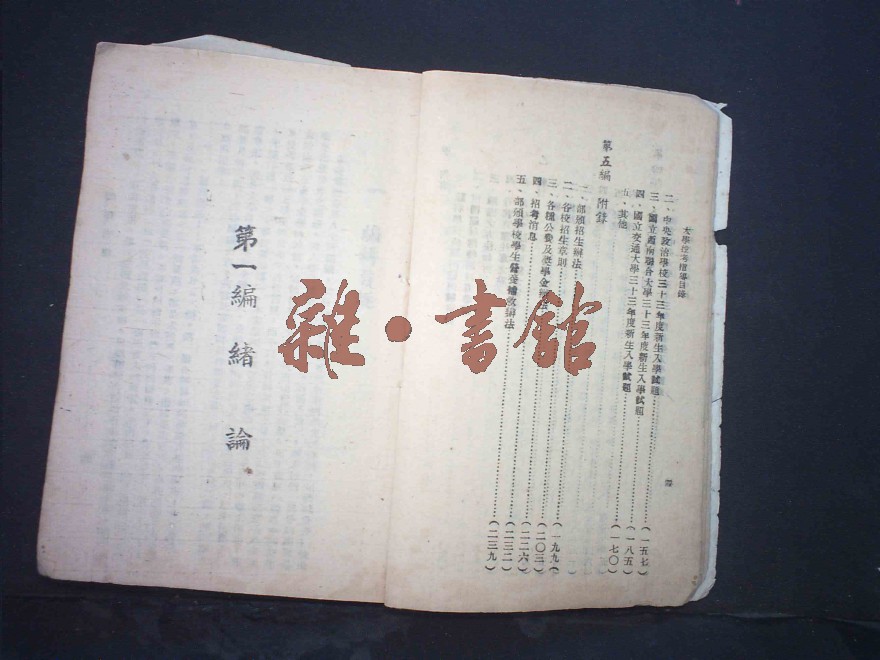 大學投考指導目錄
二、中央政治學校三十三年度新生入學試題……(一五七)
三、國立西南聯合大學三十三年度新生入學試題……(一八五)
四、國立交通大學三十三年度新生入學試題……(一七〇)
五、其他
第五編 附錄
一、部頒招生辦法
二、各校招生章則……(一九九)
三、各種公費及獎學金……(二〇三)
四、招考消息……(二二六)
五、部頒學校學生營養補救辦法……(二三二)
(二三九)
四
第一編 緒論
雜·書館